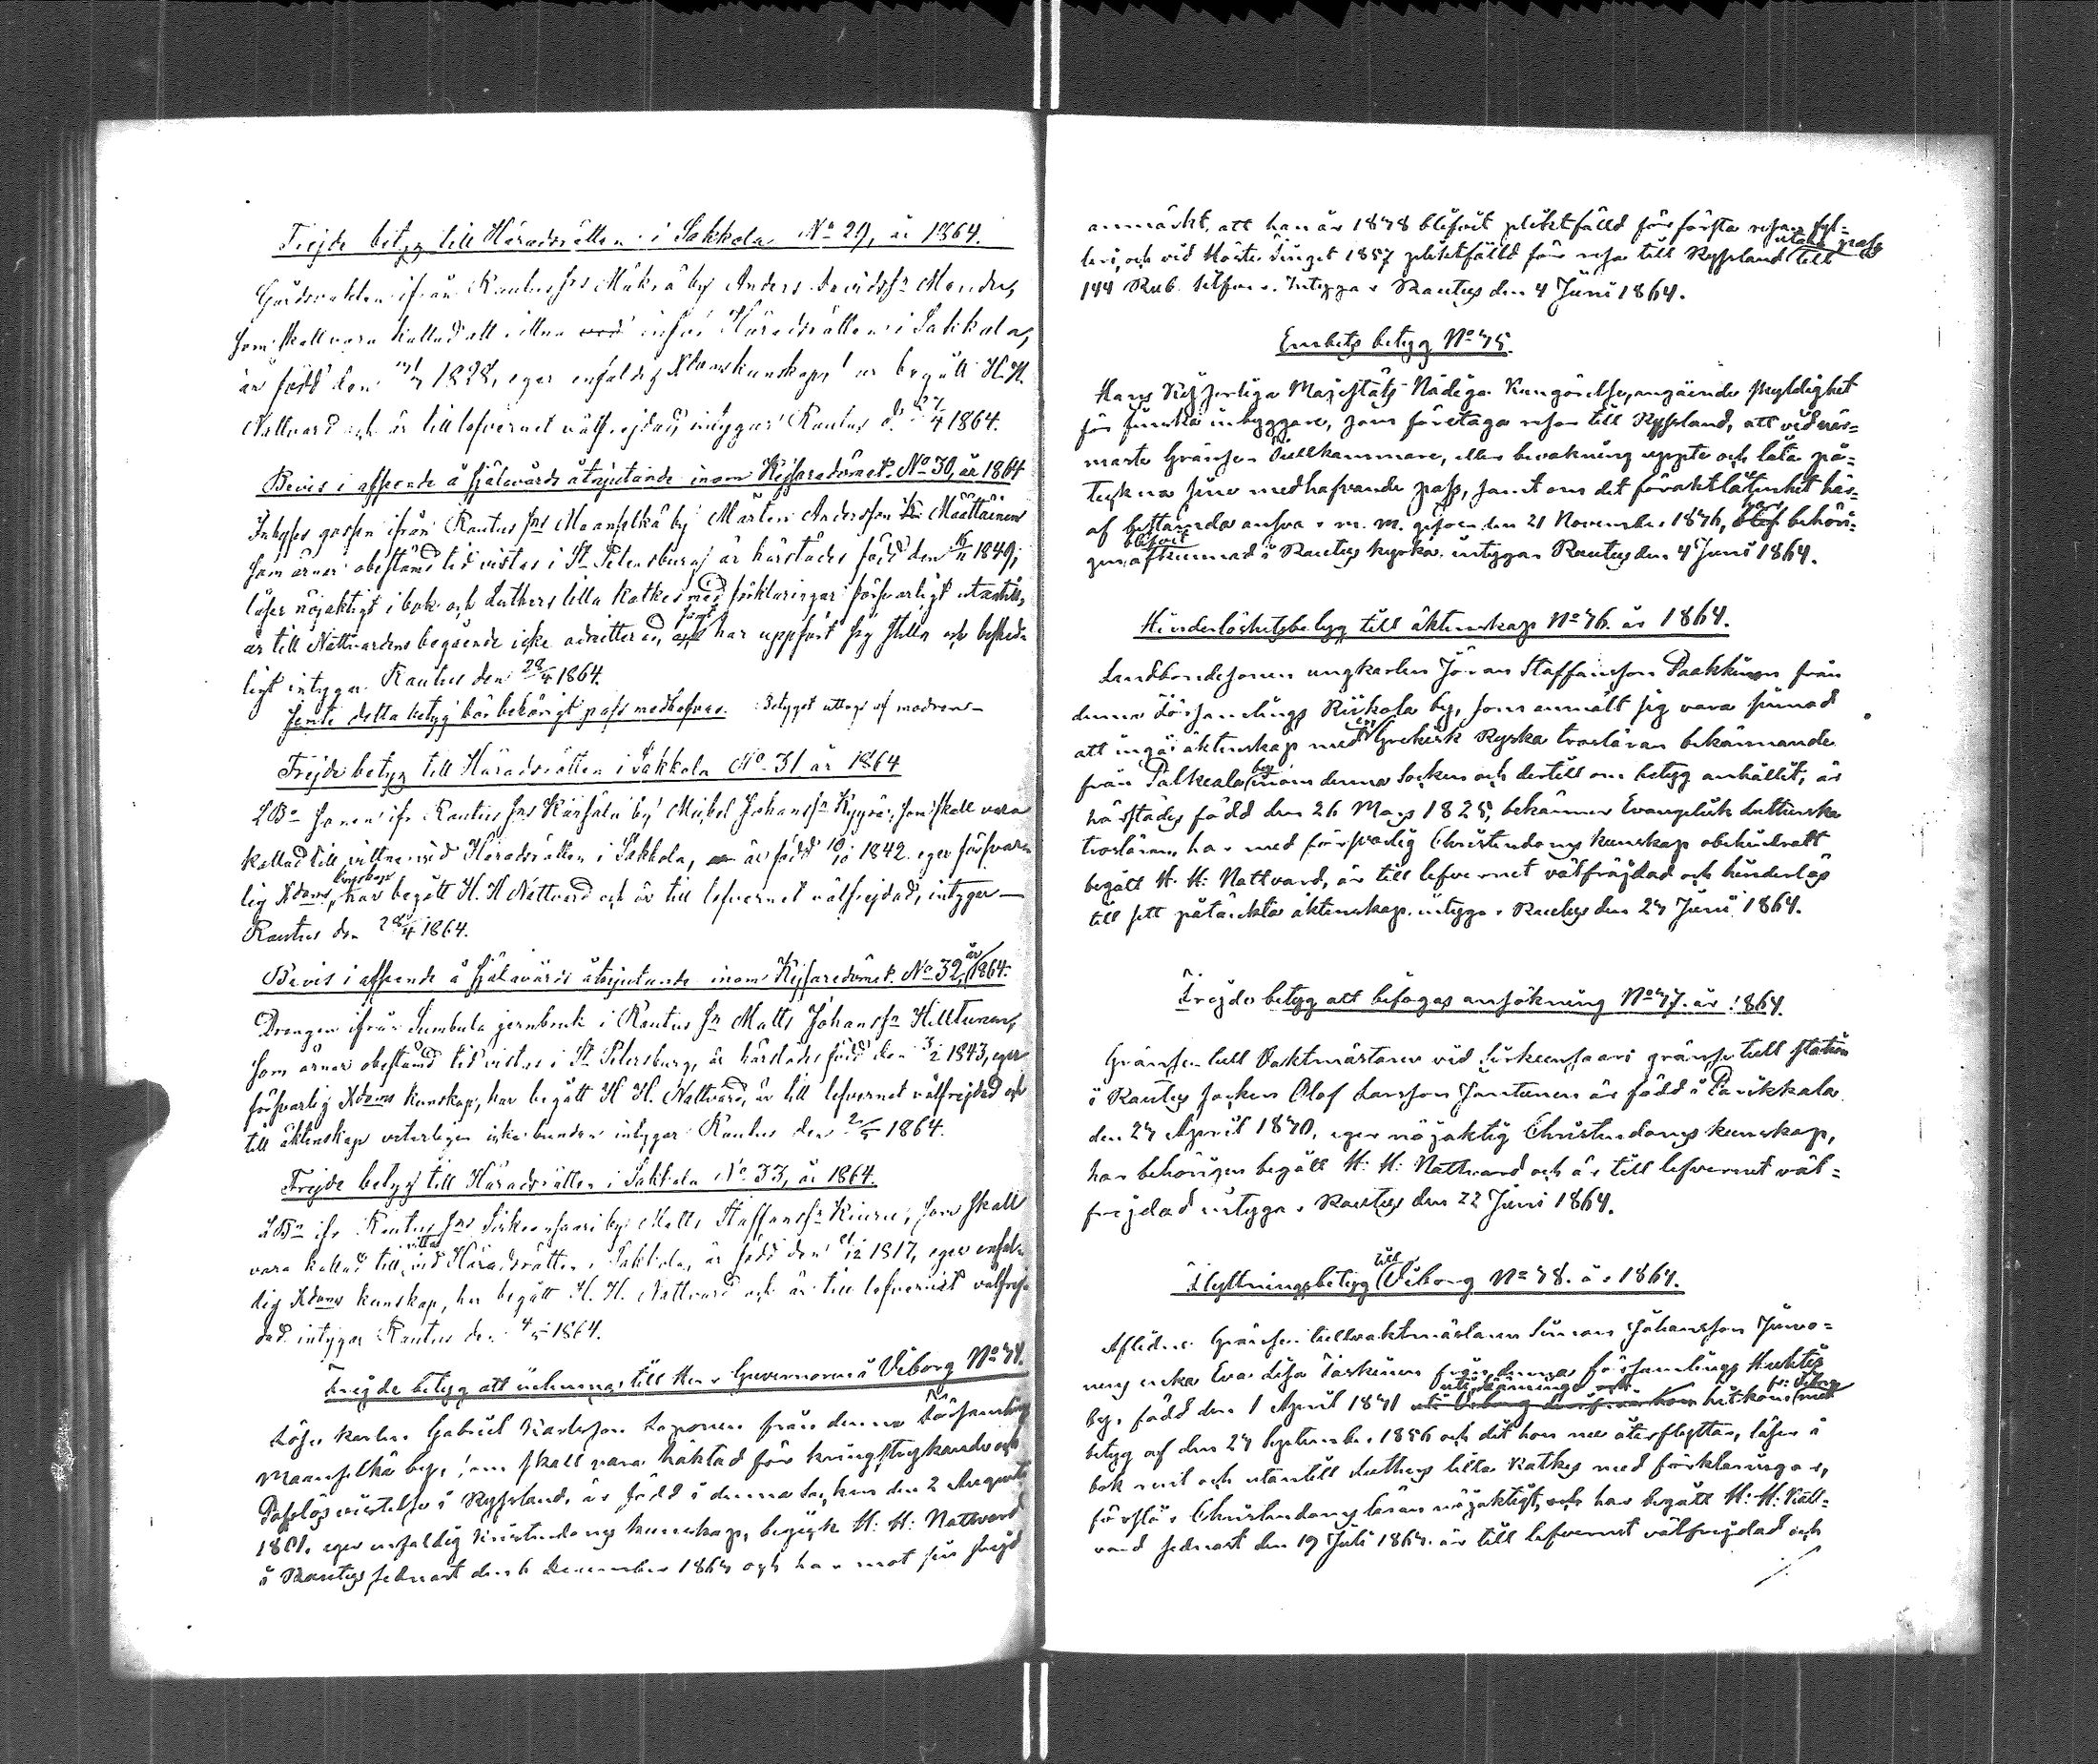 Frejde betyg till Häradsrätten i Sakkola No 29, år 1864.
Gårdsvakten ifrån Rautus Sns Mäkrä by Anders Davidsn Mondu,
som skall vara kallad att vittna infor Häradsrätten i Sakkola,
är född den 1828, eger enfaldig Xdomskunskap, har begått H. H.
Nattvard och är till lefvernet välfrejdad, intygar Rautus d. 1864.
Bevis i afseende å själavårds åtnjutande inom Kejsaredömet. No 30, år 1864
Inhyses gossen ifrån Rautus Sns Maanselkä by Mårten Andersson Määttäinen
som ärnar obestämd tid vistas i St Petersburg är härstädes född den 1849,
läser nöjaktigt i bok och Luthers lilla Katkes med förklaringar försvarligt utantill,
är till Nattvardens begående icke admitterad, samt har uppfört sig stilla och beskedligt
intygar Rautus den 28/4 1864.
Jemte detta betyg bör behörigt pass medhafvas. Betyget uttogs af modren
Frejde betyg till Häradsrätten i Sakkola No 31 år 1864
LBo sonen ifr. Rautus Sns by Mickel Johanssn som skall vara
kallad till vittne vid Häradsrätten i Sakkola, är född 10/10 1842. eger försvar
lig Xdoms kunskap, har begått H. H. Nattvard och är till lefvernet välfrejdad, intygar
Rautus den 28/4 1864.
Bevis i afseende å själavårds åtnjutande inom Kejsaredömet. No 32, år 1864.
Drengen ifrån Sumbula jernbruk i Rautus Sn Matts Johanssn Hilltunen,
som ärnar obestämd tid vistas i St Petersburg, är härstädes född den 3/2 1843, eger
försvarlig Xdoms kunskap, har begått H. H. Nattvard, är till lefvernet välfrejdad och
till äktenskap veterligen icke bunden intygar Rautus den 2/5 1864.
Frejde betyg till Häradsrätten i Sakkola No 33, år 1864.
LBn ifr. Rautus Sns Sirkeensaari by Matts Staffanssn Kiuru, som skall
vara kallad till vittne vid Häradsrätten i Sakkola, är född den 1817, eger enfal-
dig Xdoms kunskap, har begått H. H. Nattvard och är till lefvernet välfrej-
dad intygar Rautus den 4/5 1864.
Frejde betyg att inlemnas till Herr Guvernören i Viborg No 74.
Löse karlen Gabriel Karlsson Loponen från denna Församlings
Maanselkä by, som skall vara häktad för kringstrykande och
Passlös vistelse i Ryssland, är född i denna Socken den 2 Augusti
1801, eger enfaldig Kristendoms kunskap, begick H: H: Nattvard
i Rautus sednast den 6 December 1863 och har mot sin frejd
anmärkt, att han år 1848 blifvit pliktfälld för första resan fyl-
leri, och vid Höste Tinget 1857 pliktfälld för resa till Ryssland utan pass till
144 Rub. silfver. Intygar Rautus den 4 Juni 1864.
Embets betyg No 75.
Hans Kejserliga Majestäts Nådiga Kungörelse, angående skyldighet
för finska inbyggare, som företaga resor till Ryssland, att vid när-
maste Gränse Tullkammare, eller bevakning uppte och låta på-
teckna sine medhafvande pass, samt om det för aktlåtenhet här-
af bestämda ansvar m. m. gifven den 21 November 1846, har behöri-
gen blifvit afkunnad i Rautus kyrka. intygar Rautus den 4 Juni 1864.
Hinderlöshetsbetyg till äktenskap No 76. år 1864.
Landbondesonen ungkarlen Jöran Staffansson Paakkinen från
denna Församlings Riikola by, som anmält sig vara sinnad
att ingå äktenskap med en Grekisk Ryska trosläran bekännande
från Palkeala by inom denna Socken och dertill om betyg anhållit, är
härstädes född den 26 Mars 1825, bekänner Evangelisk Lutherska
trosläran, har med försvarlig Christendoms kunskap obehindrat
begått H. H: Nattvard, är till lefvernet välfräjdad och hinderlös
till sitt påtänkta äktenskap. intygar Rautus den 27 Juni 1864.
Frejde betyg att befogas ansökning No 77. år 1864
Gränse tull Vaktmästaren vid Sirkeensaari gränse tull station
i Rautus Socken Olof Larsson Jantunen är född i Parikkala
den 27 April 1840, eger nöjaktig Christendoms kunskap,
har behörigen begått H: H: Nattvard och är till lefvernet väl-
frejdad intygar Rautus den 22 Juni 1864.
Flyttningsbetyg till Viborg No 78. år 1864.
Aflidne Gränse tullvaktmästaren Simon Johansson Juvo-
nens enka Eva Lisa Taskinen från denna församlings Huhtis
by, född den 1 April 1841 hitkom fr. Viborg med
betyg af den 27 September 1856 och dit hon nu återflyttar, läser i
bok rent och utantill Luthers lilla Katkes med förklaringar,
förstår Christendoms läran nöjaktigt, och har begått H: H: Natt-
vard sednast den 19 Juli 1863. är till lefvernet välfrejdad och